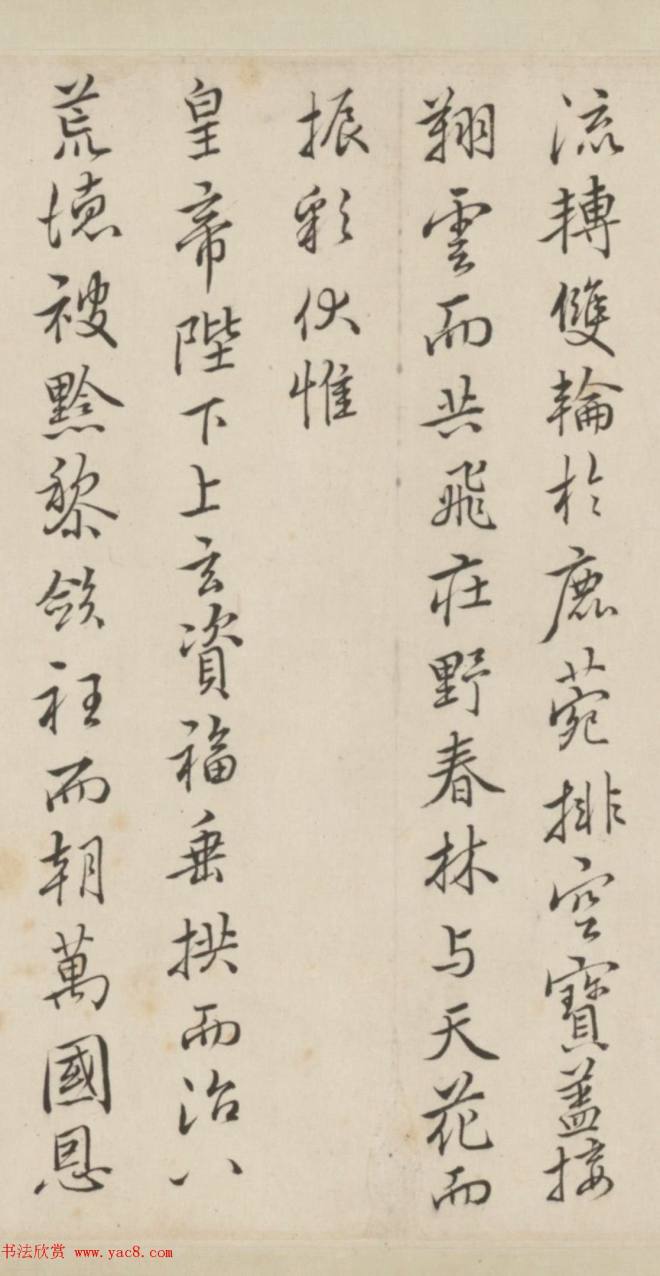 流轉雙輪於鹿菀排空寶蓋接
翔雲而共飛莊野春林与天花而
振彩伏惟
皇帝陛下上玄資福垂拱而治八
荒德被黔黎斂衽而朝萬國恩
书法欣赏 www.yac8.com